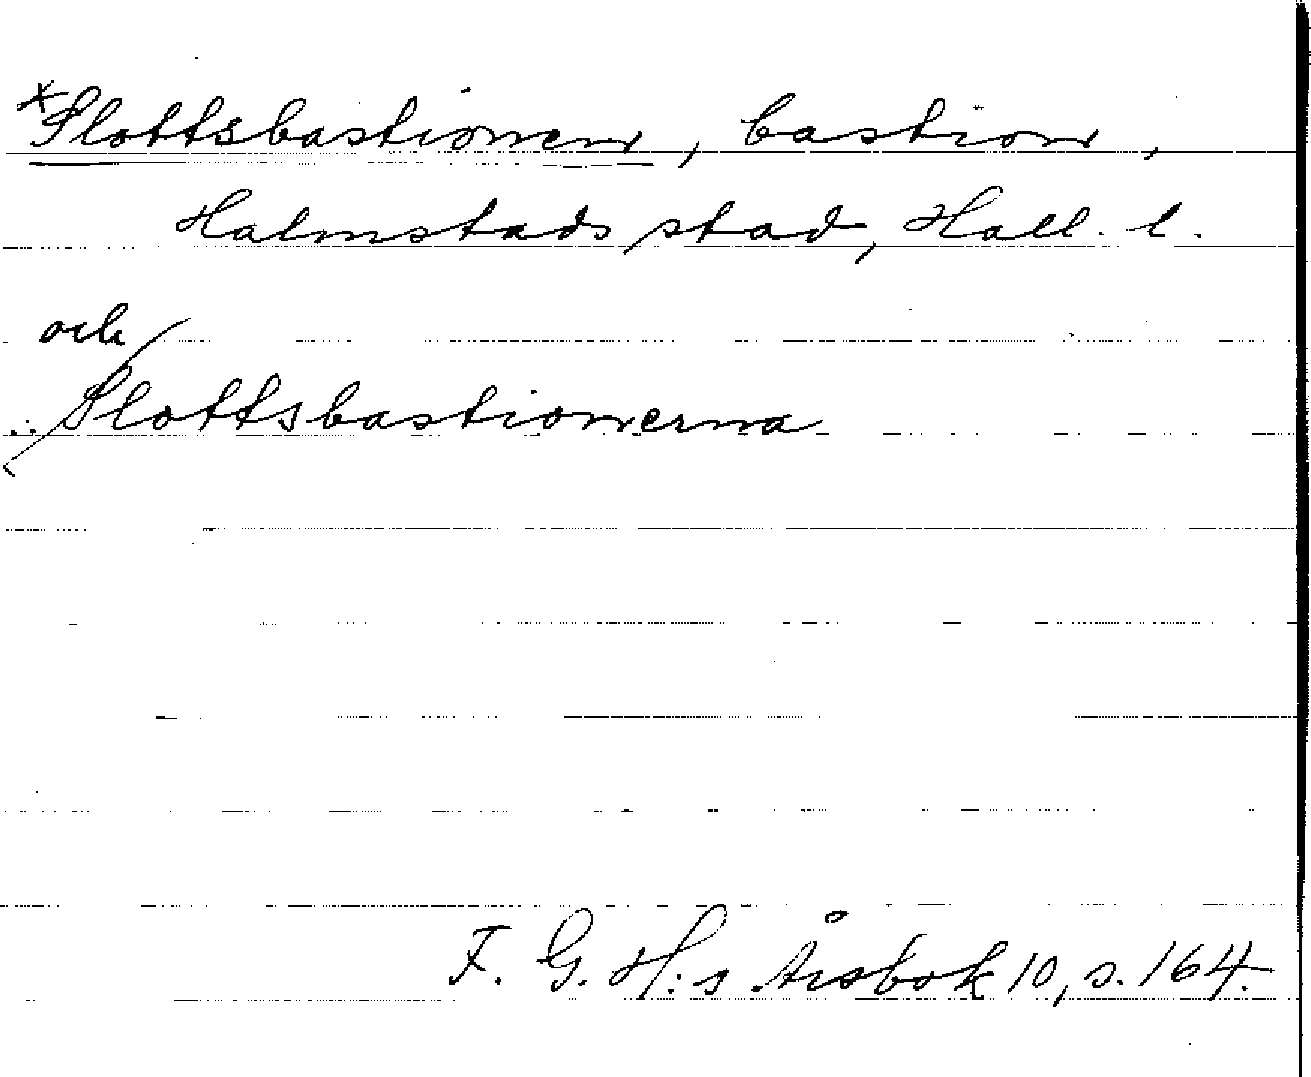 *Slottsbastionen, bastion,
Halmstads stad, Hall. l.
och
Slottsbastionerna
F. G. H:s Årsbok 10, s. 164.